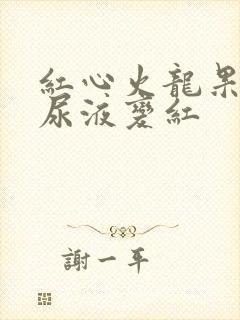 紅心火龍果
尿液變紅
謝一平